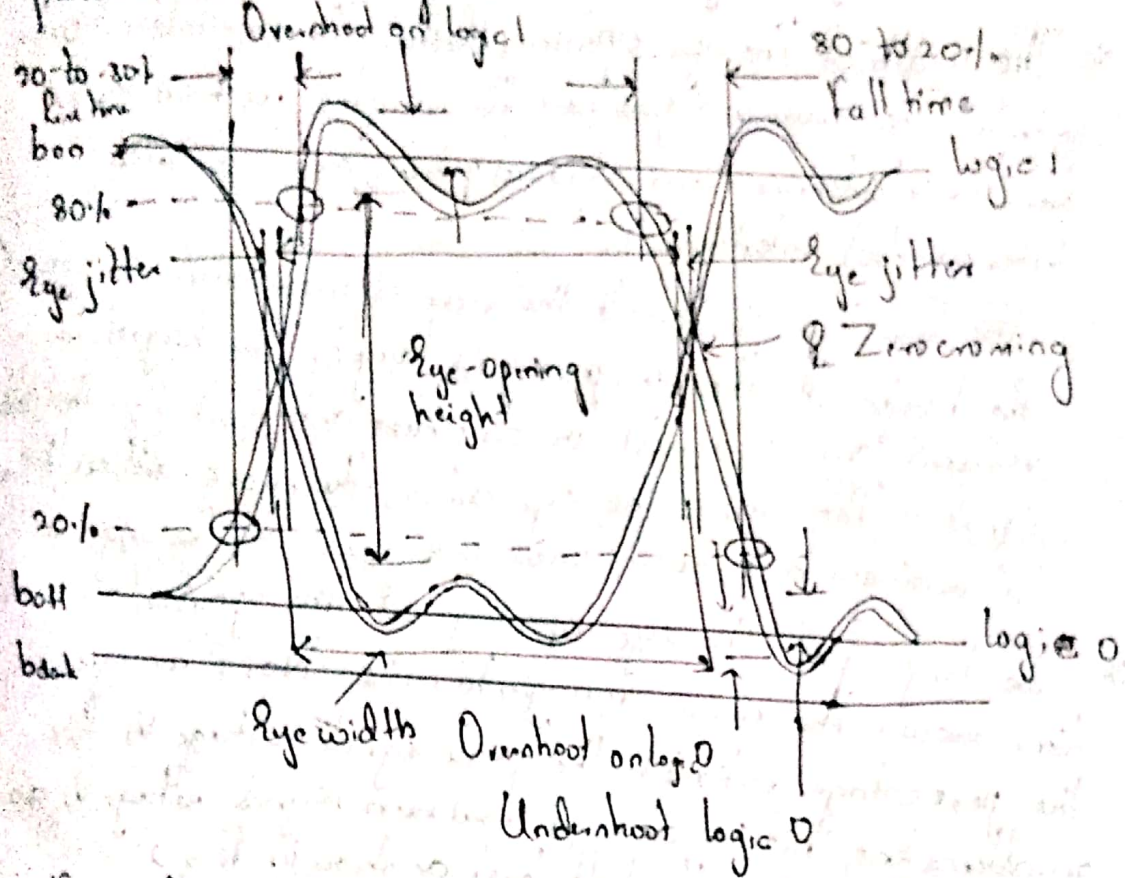 Overshoot on logic 1
20-to-80%
Rise time
80-to 20%
Fall time
bon
logic 1
80%
Eye jitter
Eye jitter
Zerocrossing
Eye-opening
height
20%
boff
logic 0
bdark
Eye width
Overshoot on log.0
Undershoot logic 0